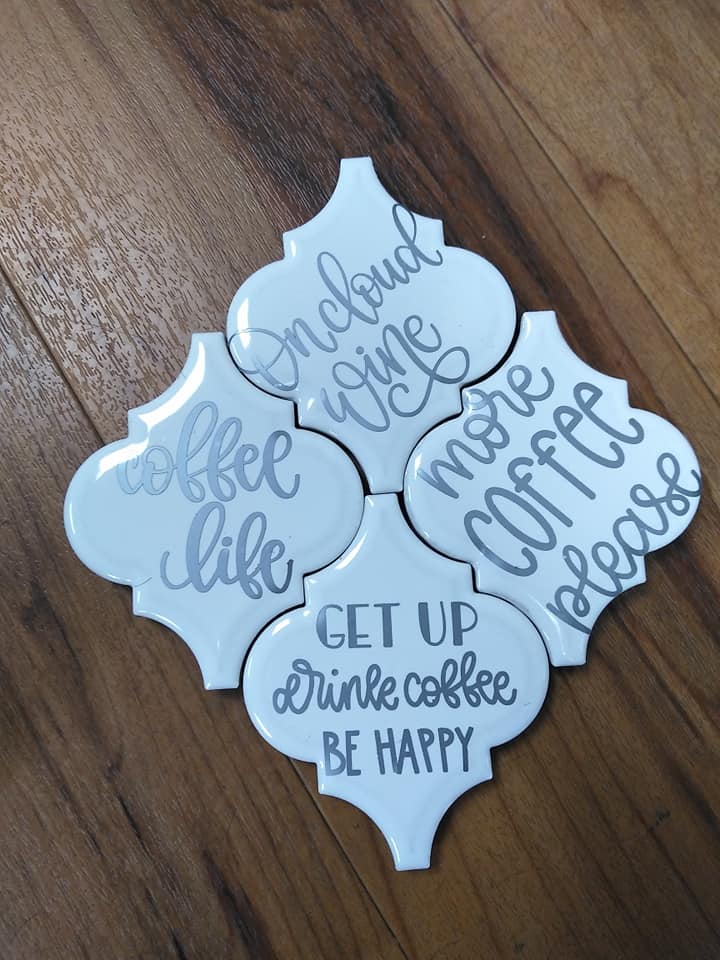 On cloud
wine
coffee
life
more
coffee
please
GET UP
drink coffee
BE HAPPY